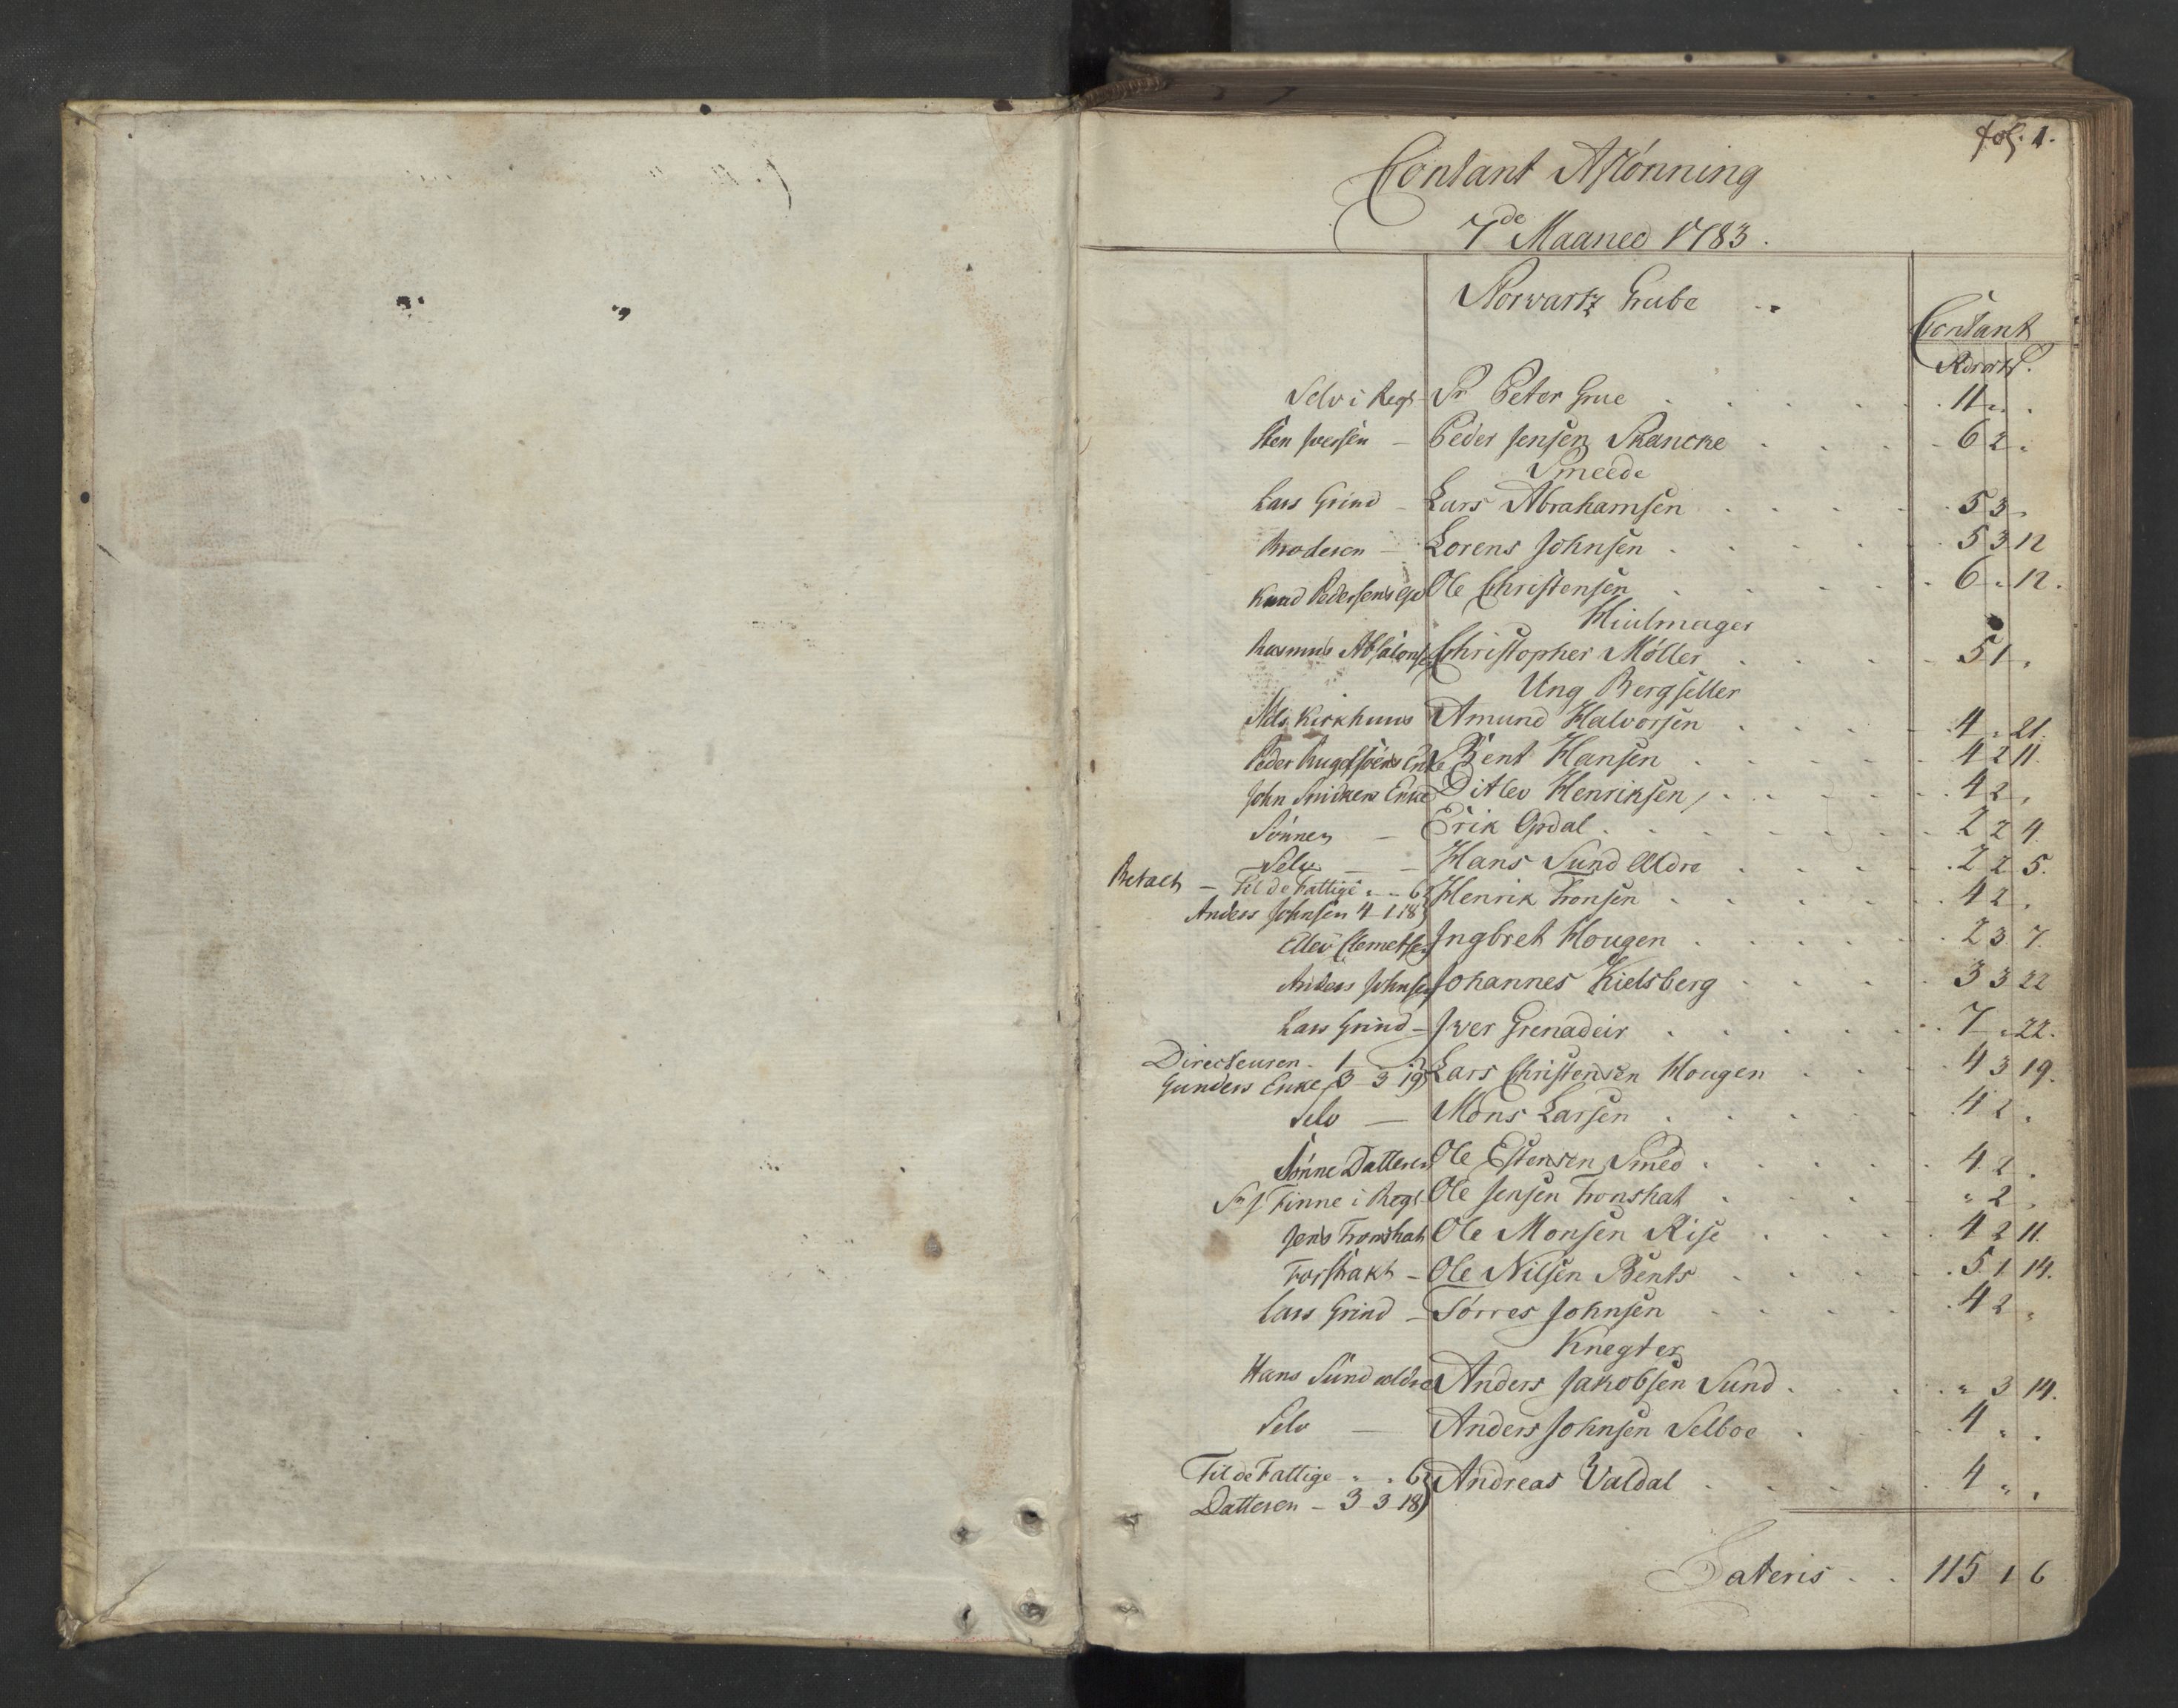 fol: 1.
Contant Aflønning
7de Maaned 1783.
Storvartz Grube
Contant
Rd ort s.
Selv i Regt - Sr Peter Grue 11 " .
Sten Iversen - Peder Jensen Skancke 6 2 .
Smeede
Lars Grind - Lars Abrahamsen 5 3 .
Broderen - Lorens Johnsen 5 3 12
Knud Pedersens Ole Christensen 6 " 12.
Hiulmager
Rasmus Absalons Christopher Møller 5 1 .
Ung Bergseller
Nils Kirkhuus Amund Halvorsen 4 " 21.
Peder Enke Bent Hansen 4 2 11.
John Snidkers Enke Ditlev Henriksen 4 2 .
Sønnen - Erik Opdal 2 2 4.
Selv - Hans Sund Ældre 2 2 5.
Betalt - Til de Fattige " " 6 } Henrik Tronsen 4 2 .
Anders Johnsen 4 1 18 }
Ellev Clemetsen Ingbret Hougen 2 3 7.
Anders Johnsen Johannes Kielsberg 3 3 22
Lars Grind - Iver Grenadeir 7 " 22.
Directeuren - 1 } Lars Christensen Hougen 4 3 19.
Gunders Enke 3 3 19 }
Selv - Mons Larsen 4 2 .
Sønne Datteren Ole Estensen Smed 4 2 .
Sr J Finne i Regt - Ole Jensen Tronshat " 2 .
Jens Tronshat Ole Monsen Rise 4 2 11.
Forstrakt - Ole Nilsen Bents 5 1 14.
Lars Grind - Tørres Johnsen 4 2 "
Knegter
Hans Sund ældre Anders Jakobsen Sund " 3 14.
Selv - Anders Johnsen Selboe 4 " .
Til de Fattige " " 6 } Andreas Valdal 4 " .
Datteren - 3 3 18 }
Lateris 115 1 6